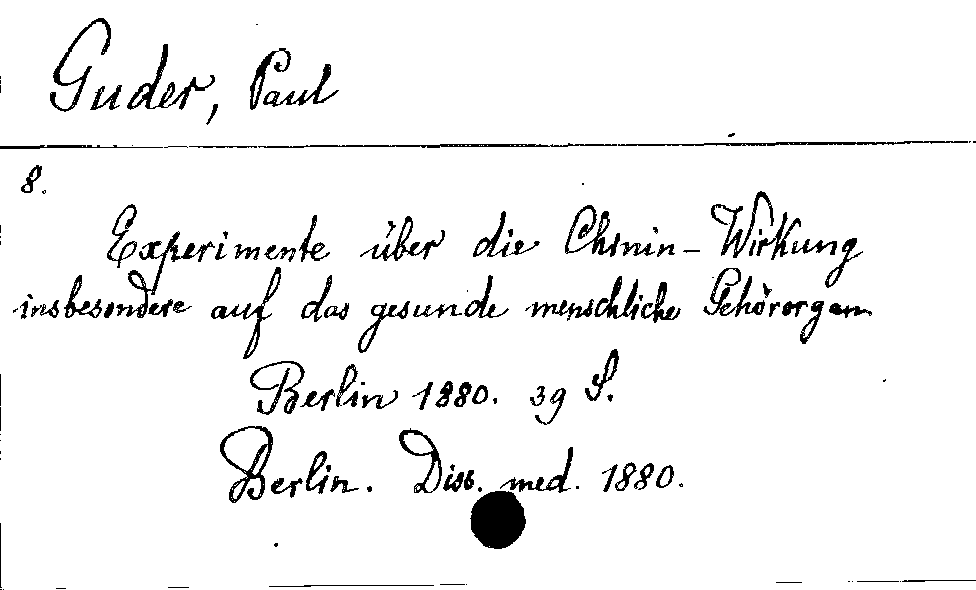 Guder, Paul
8.
Experimente über die Chinin-Wirkung
insbesondere auf das gesunde menschliche Gehörorgan
Berlin 1880. 39 S.
Berlin. Diss. med. 1880.